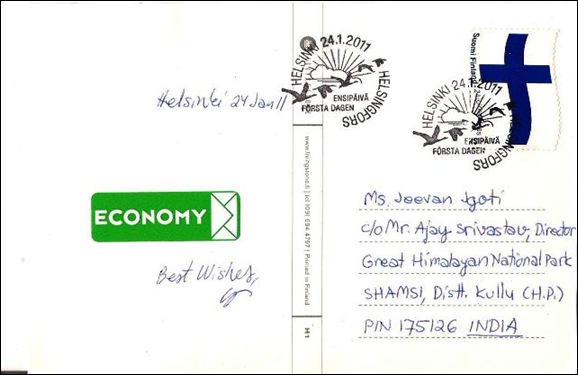 Helsinki 24 Jan 11
ECONOMY
Best Wishes,
HELSINKI 24.1.2011
HELSINGFORS
ENSIPÄIVÄ
FÖRSTA DAGEN
www.livingstone.fi | tel (09) 694 4797 | Printed in Finland
H1
Suomi Finland
HELSINKI 24.1.2011
HELSINGFORS
ENSIPÄIVÄ
FÖRSTA DAGEN
Ms. Jeevan Jyoti
c/o Mr. Ajay Srivastav, Director
Great Himalayan National Park
SHAMSI, Distt. Kullu (H.P.)
PIN 175126 INDIA